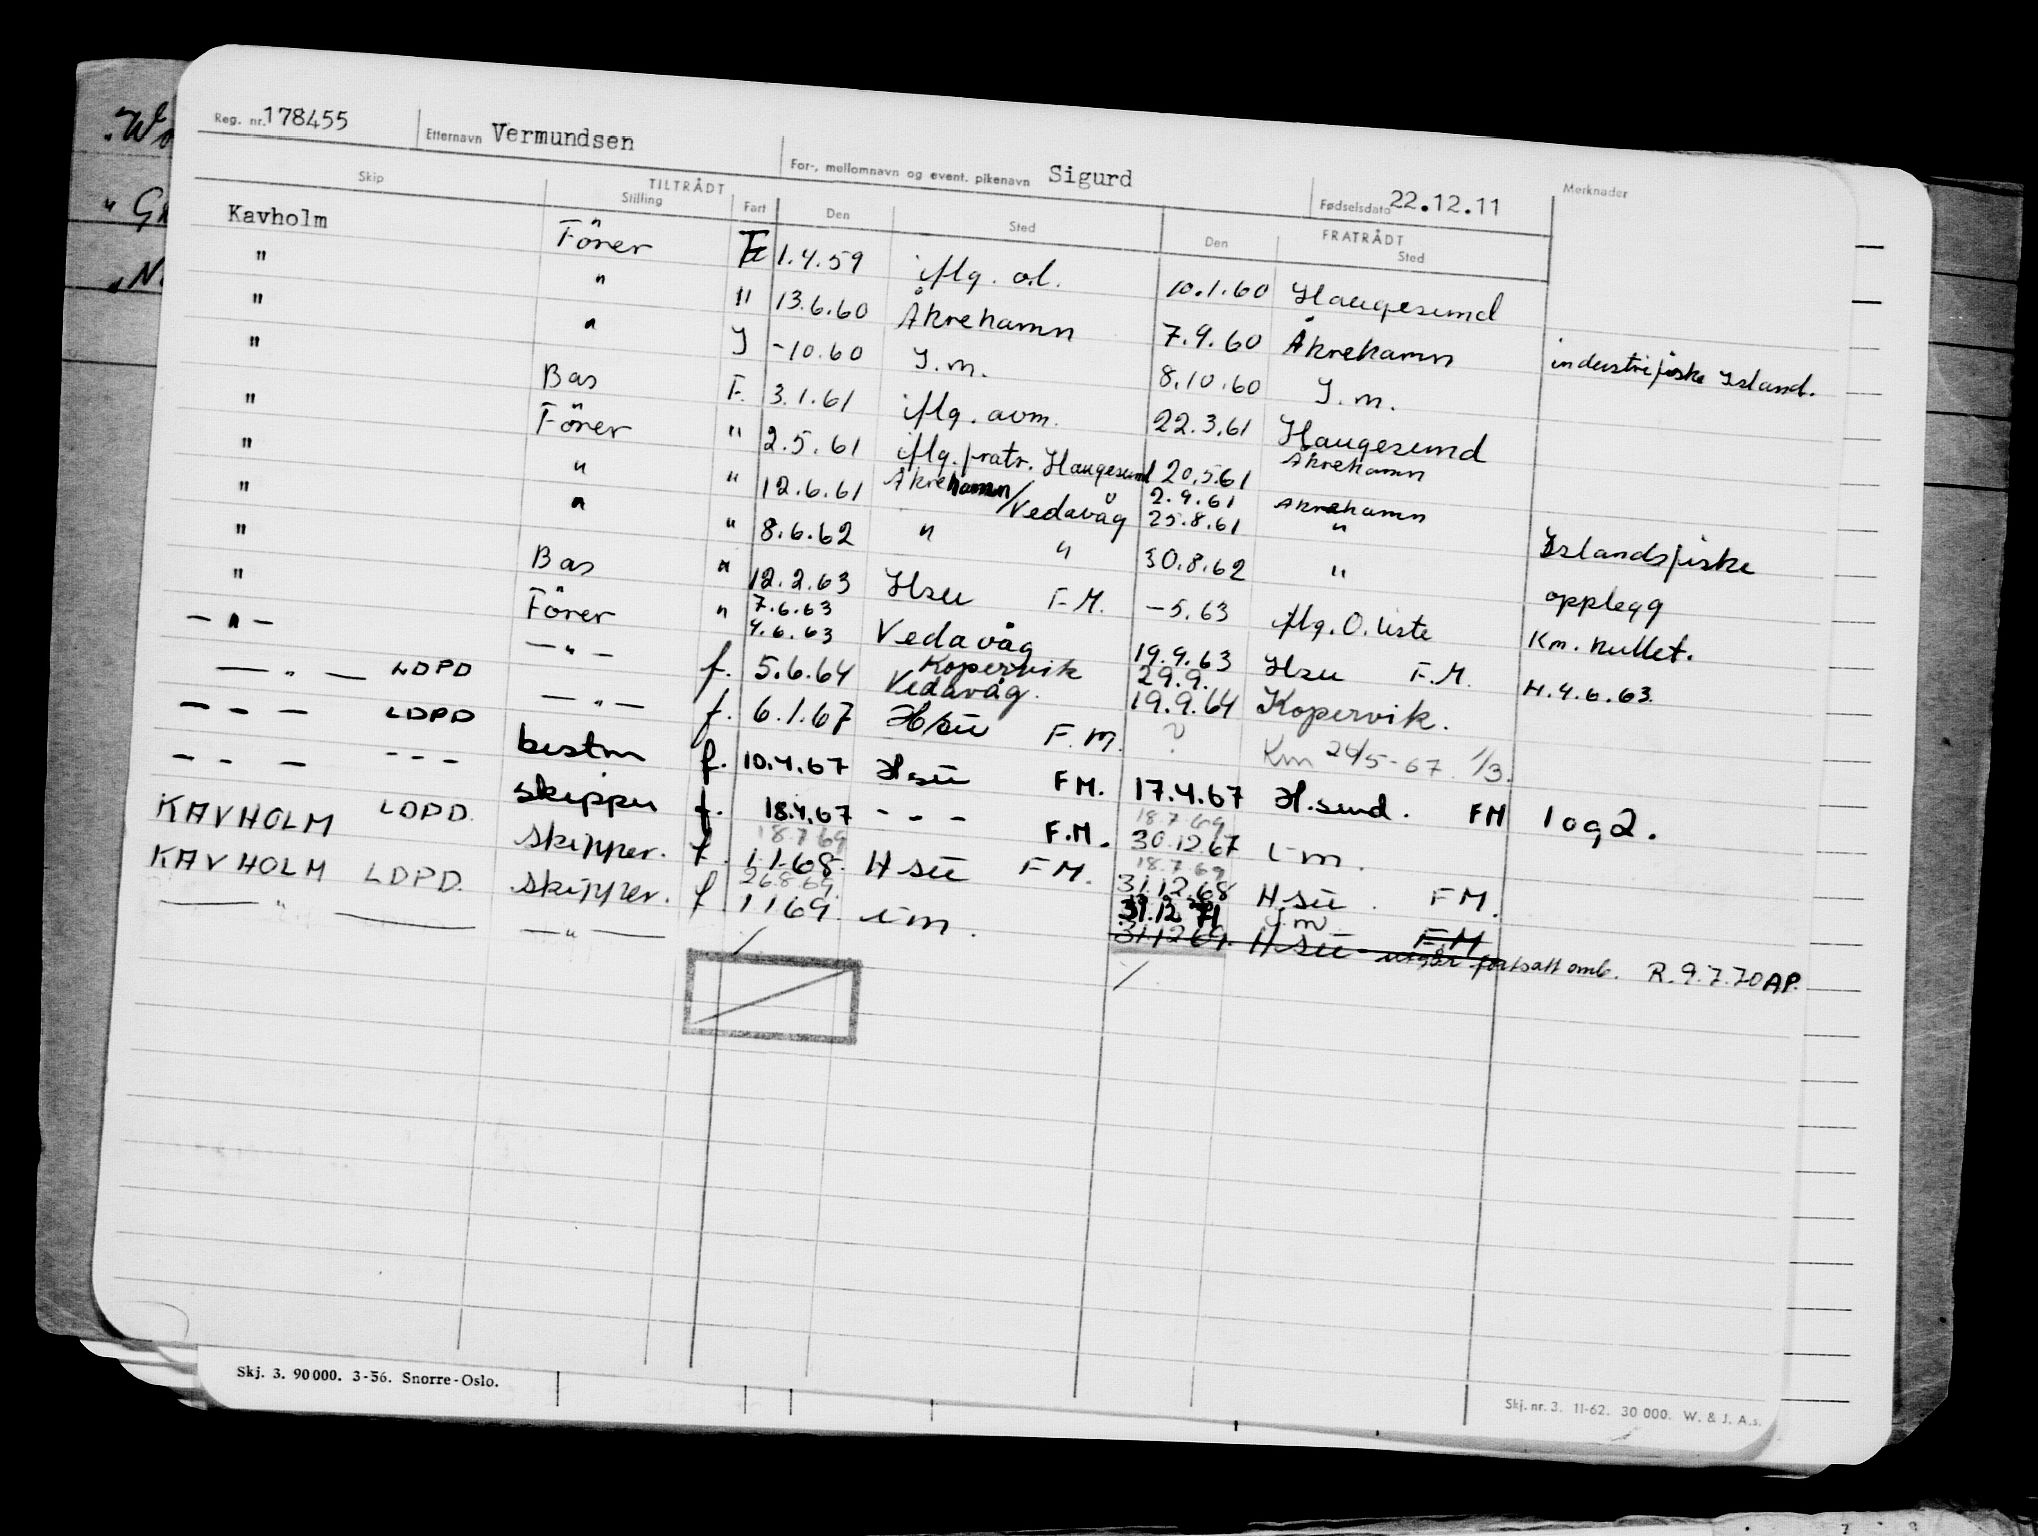 Reg. nr. 178455 Etternavn Vermundsen For-, mellomnavn og event. pikenavn Sigurd Fødselsdato 22.12.11 Merknader
TILTRÅDT FRATRÅDT
Skip Stilling Fart Den Sted Den Sted
Kavholm Förer F 1.4.59 iflg. o.l. 10.1.60 Haugesund
" " " 13.6.60 Åkrehamn 7.9.60 Åkrehamn industrifiske Island.
" " I -10.60 I.m. 8.10.60 I.m.
" Bas F. 3.1.61 iflg. avm. 22.3.61 Haugesund
" Förer " 2.5.61 iflg. fratr. Haugesund 20.5.61 Åkrehamn
" " " 12.6.61 Åkrehamn/Vedavåg 2.9.61 Åkrehamn
25.8.61 "
" " " 8.6.62 " " 30.8.62 " Islandsfiske
" Bas " 12.2.63 Hsu F.M. -5.63 iflg. O. liste opplegg
" Förer " 7.6.63 Vedavåg 19.9.63 Hsu F.M. Km. nullet.
4.6.63 Kopervik 29.9. H.4.6.63.
- " - - " - f. 5.6.64 Vedavåg. 19.9.64 Kopervik.
- " - LDPD - " - f. 6.1.67 H/su F.M. ? Km 24/5-67. 1/3.
- - - LDPD bestm f. 10.4.67 Hsu FM. 17.4.67 H.sund. FM 1 og 2.
- - - - - - skipper f. 18.4.67 - - - F.M. 18.7.69
18.7.69 30.12.67 i m.
KAVHOLM LDPD. skipper. f. 1.1.68. H su FM. 18.7.69
26.8.69 31.12.68 H su. FM.
KAVHOLM LDPD. skipper. f. 1 1 69. i m. 31.12 71 I.m
— " — — " — 31.12 69. H su F.M utgår fortsatt omb. R. 9.7.70 AP.
Skj. 3. 90000. 3-56. Snorre-Oslo.
Skj. nr. 3. 11-62. 30 000. W. & J. A.s.